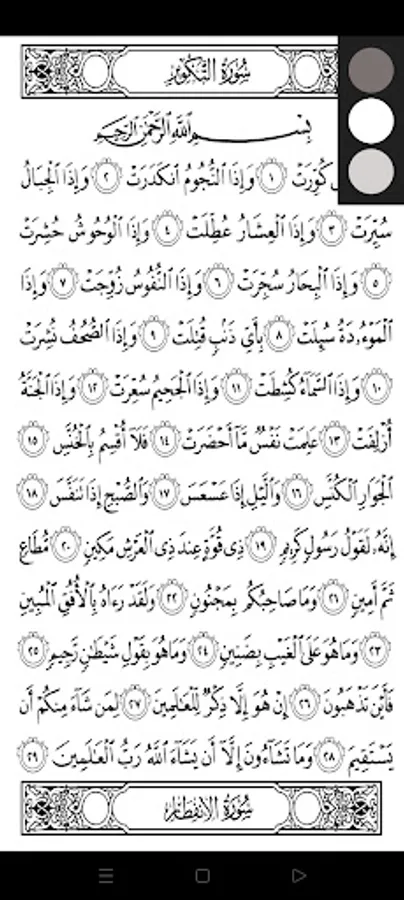 سُورَةُ التَّكْوِيرِ
بِسْمِ ٱللَّهِ ٱلرَّحْمَٰنِ ٱلرَّحِيمِ
كُوِّرَتْ ١ وَإِذَا ٱلنُّجُومُ ٱنكَدَرَتْ ٢ وَإِذَا ٱلْجِبَالُ
سُيِّرَتْ ٣ وَإِذَا ٱلْعِشَارُ عُطِّلَتْ ٤ وَإِذَا ٱلْوُحُوشُ حُشِرَتْ
٥ وَإِذَا ٱلْبِحَارُ سُجِّرَتْ ٦ وَإِذَا ٱلنُّفُوسُ زُوِّجَتْ ٧ وَإِذَا
ٱلْمَوْءُۥدَةُ سُئِلَتْ ٨ بِأَيِّ ذَنۢبٍ قُتِلَتْ ٩ وَإِذَا ٱلصُّحُفُ نُشِرَتْ
١٠ وَإِذَا ٱلسَّمَآءُ كُشِطَتْ ١١ وَإِذَا ٱلْجَحِيمُ سُعِّرَتْ ١٢ وَإِذَا ٱلْجَنَّةُ
أُزْلِفَتْ ١٣ عَلِمَتْ نَفْسٌ مَّآ أَحْضَرَتْ ١٤ فَلَآ أُقْسِمُ بِٱلْخُنَّسِ ١٥
ٱلْجَوَارِ ٱلْكُنَّسِ ١٦ وَٱلَّيْلِ إِذَا عَسْعَسَ ١٧ وَٱلصُّبْحِ إِذَا تَنَفَّسَ ١٨
إِنَّهُۥ لَقَوْلُ رَسُولٍ كَرِيمٍ ١٩ ذِى قُوَّةٍ عِندَ ذِى ٱلْعَرْشِ مَكِينٍ ٢٠ مُّطَاعٍ
ثَمَّ أَمِينٍ ٢١ وَمَا صَاحِبُكُم بِمَجْنُونٍ ٢٢ وَلَقَدْ رَءَاهُ بِٱلْأُفُقِ ٱلْمُبِينِ
٢٣ وَمَا هُوَ عَلَى ٱلْغَيْبِ بِضَنِينٍ ٢٤ وَمَا هُوَ بِقَوْلِ شَيْطَٰنٍ رَّجِيمٍ ٢٥
فَأَيْنَ تَذْهَبُونَ ٢٦ إِنْ هُوَ إِلَّا ذِكْرٌ لِّلْعَٰلَمِينَ ٢٧ لِمَن شَآءَ مِنكُمْ أَن
يَسْتَقِيمَ ٢٨ وَمَا تَشَآءُونَ إِلَّآ أَن يَشَآءَ ٱللَّهُ رَبُّ ٱلْعَٰلَمِينَ ٢٩
سُورَةُ الانفِطَارِ